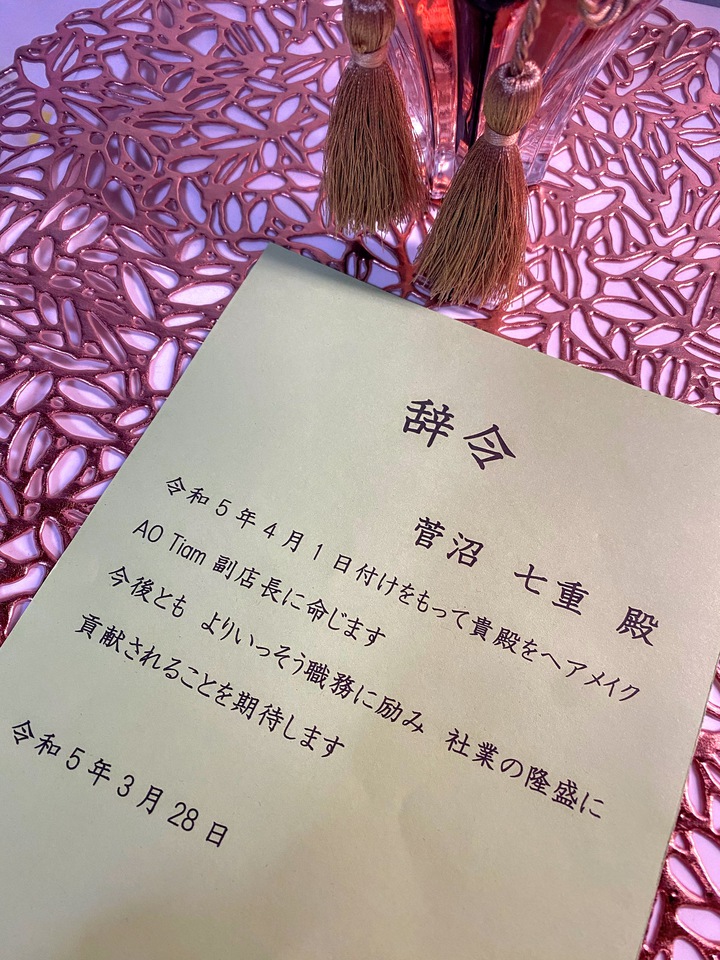 辞令
菅沼 七重 殿
令和5年4月1日付けをもって貴殿をヘアメイク
AO Tiam 副店長に命じます
今後とも よりいっそう職務に励み 社業の隆盛に
貢献されることを期待します
令和5年3月28日